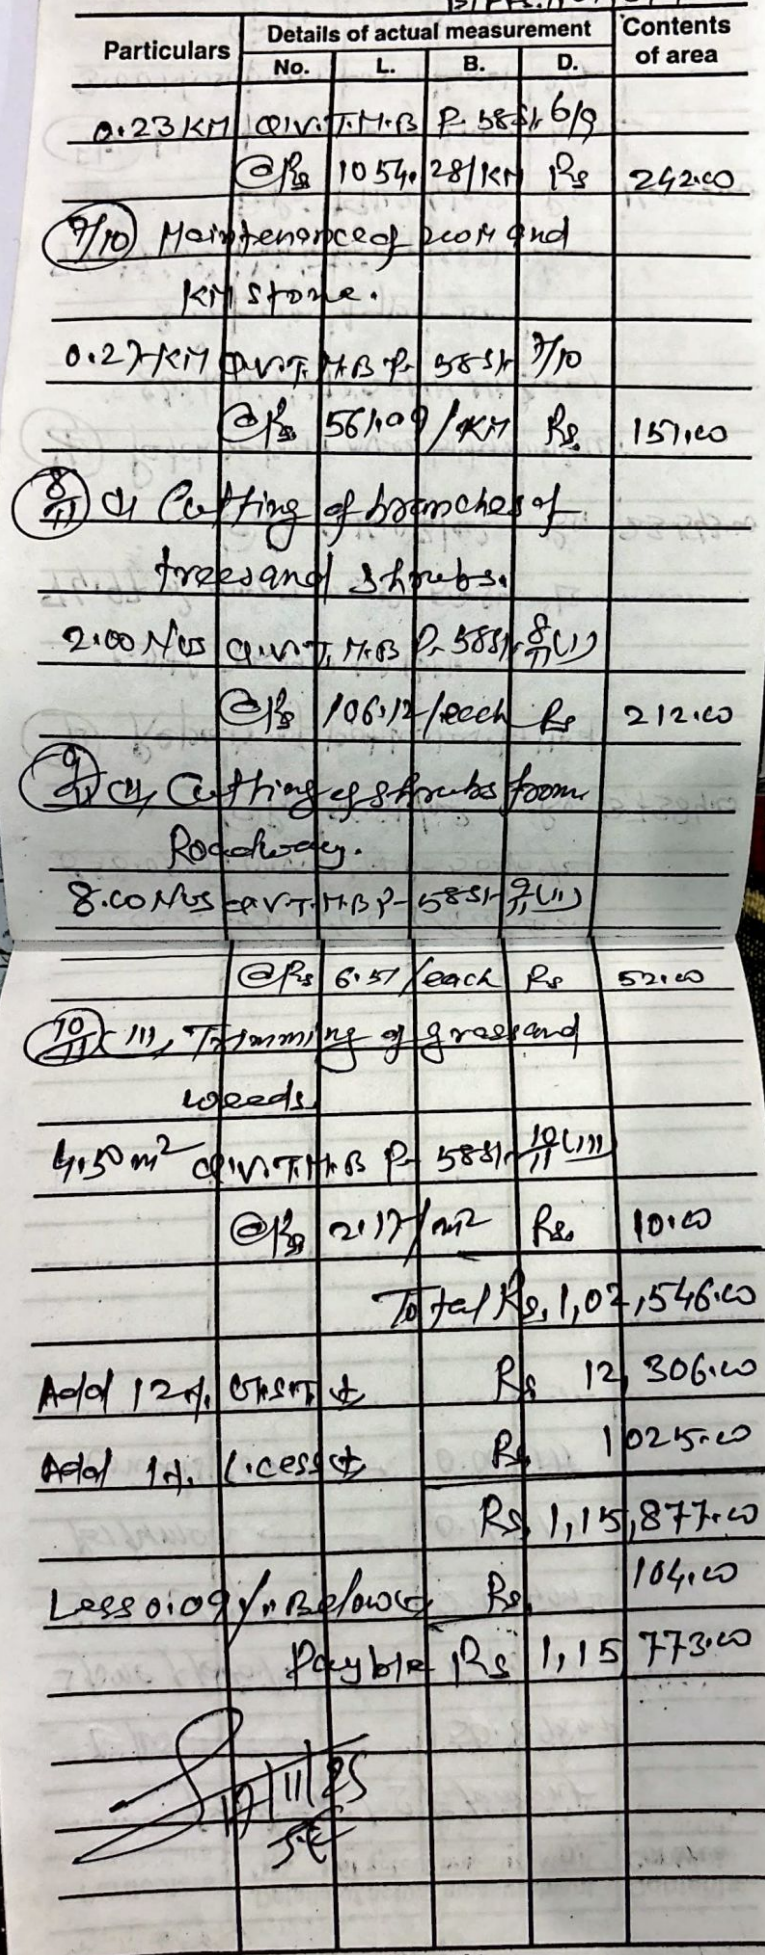 Particulars Details of actual measurement Contents of area
No. L. B. D.
0.23 KM Q.V.T.M.B P- 58 Sr 6/9
@Rs 1054.28/KM Rs 242.00
7/10 Maintenance of 200M and
KM stone.
0.27 KM Q.V.T.M.B P- 58 Sr 7/10
@Rs 561.09/KM Rs. 151.00
8/11 Cutting of branches of
trees and shrubs.
2.00 Nos Q.V.T.M.B P- 58 Sr 8/11 (i)
@Rs 106.12/each Rs 212.00
9/11 Cutting of shrubs from
Roadway.
8.00 Nos Q.V.T.M.B P- 58 Sr 9/11 (ii)
@Rs 6.51/each Rs 52.00
10/11 (iii) Trimming of grass and
weeds.
4.50 m² Q.V.T.M.B P- 58 Sr 10/11 (iii)
@Rs 2.17/m² Rs. 10.00
Total Rs. 1,02,546.00
Add 12%. Rs 12,306.00
Add 1%. L.cess Rs. 1025.00
Rs. 1,15,877.00
Less 0.09% Below Rs. 104.00
Payble Rs 1,15,773.00
/11/25